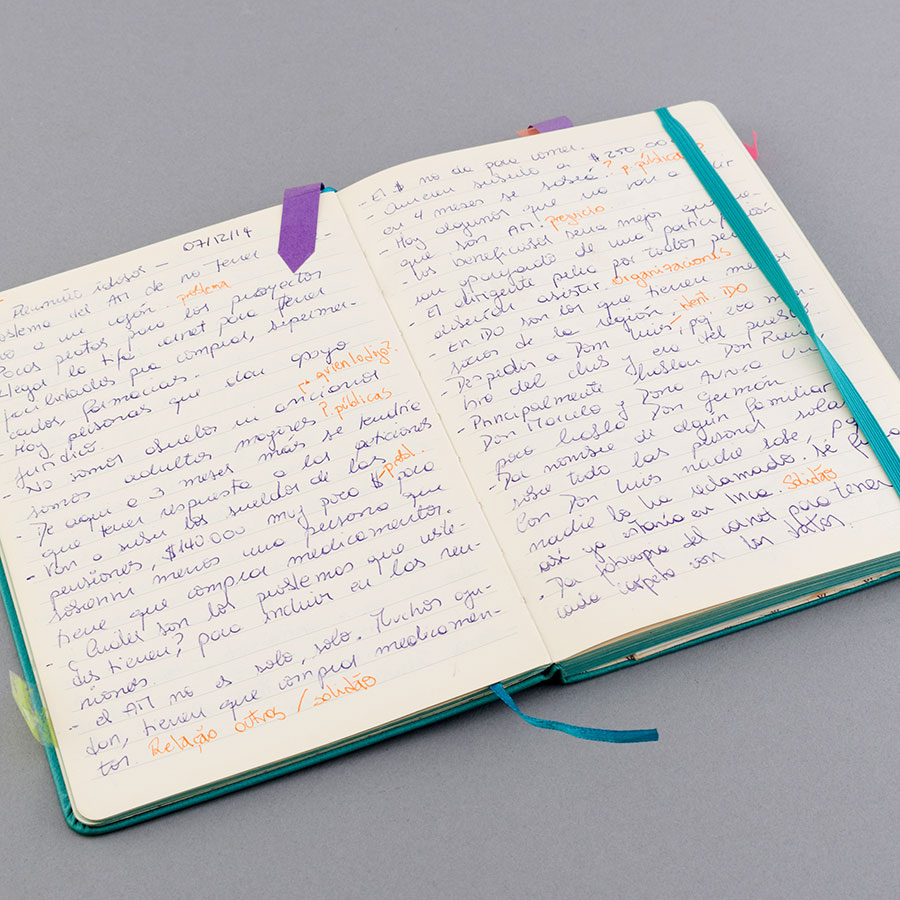 07/12/14
Reunião idosos -
problema del AM de no tener
a un cajón problema
Pocas platas para los proyectos
Llegar la tía carnet para tener
facilidades pra comprar, supermer-
cados, farmacias.
- Hay personas que dan apoyo
jurídico. quien lo dijo?
- No somos abuelos ni ancianos
somos adultos mayores P. públicas
- De aquí a 3 meses más se tendría
que tener respuesta a las peticiones
- Van a subir los sueldos de las
pensiones, $140 000 muy poco $ para
menos una persona que
tiene que comprar medicamentos.
- ¿Cuáles son los problemas que uste-
des tienen? para incluir en las reu-
niones.
- el AM no es solo, solo. Muchos ayu-
dan, tienen que comprar medicamen-
tos. Relação outros / solidão
El $ no da para comer.
- Quieren subirlo a $250.000
en 4 meses se sabrá? P. públicas?
- Hay algunos que no van a
que son AM. prejuicio
- los beneficiados
con apoyando de una participación
- El dirigente pelea por todos
deberían asistir organizaciones
- En DO son los que tienen menos
socios de la región
- Despedir a Don Luis, pq era miem-
bro del club y era del
- Principalmente hablan Don Raúl,
Don Marcelo y Dona Aurora. Un
poco habla Don Germán
- Dar nombre de algún familiar
sobre todo las personas solas
Con Don Luis nadie sabe,
nadie lo ha reclamado. se
así ya estaría en Inca. Solidão
- Da fotocopia del carnet para tener
cada carpeta con los datos.